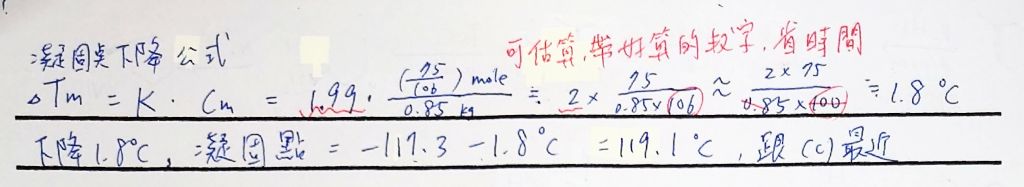 凝固点下降公式
可估算,帶好算的数字,省時間
△Tm = K · Cm = 1.99 · (75/106) mole / 0.85 kg ≒ 2 × 75 / 0.85×106 ≈ 2 × 75 / 0.85 × 100 ≒ 1.8 °C
下降1.8°C, 凝固點 = -117.3 - 1.8°C = 119.1°C, 跟 (c) 最近